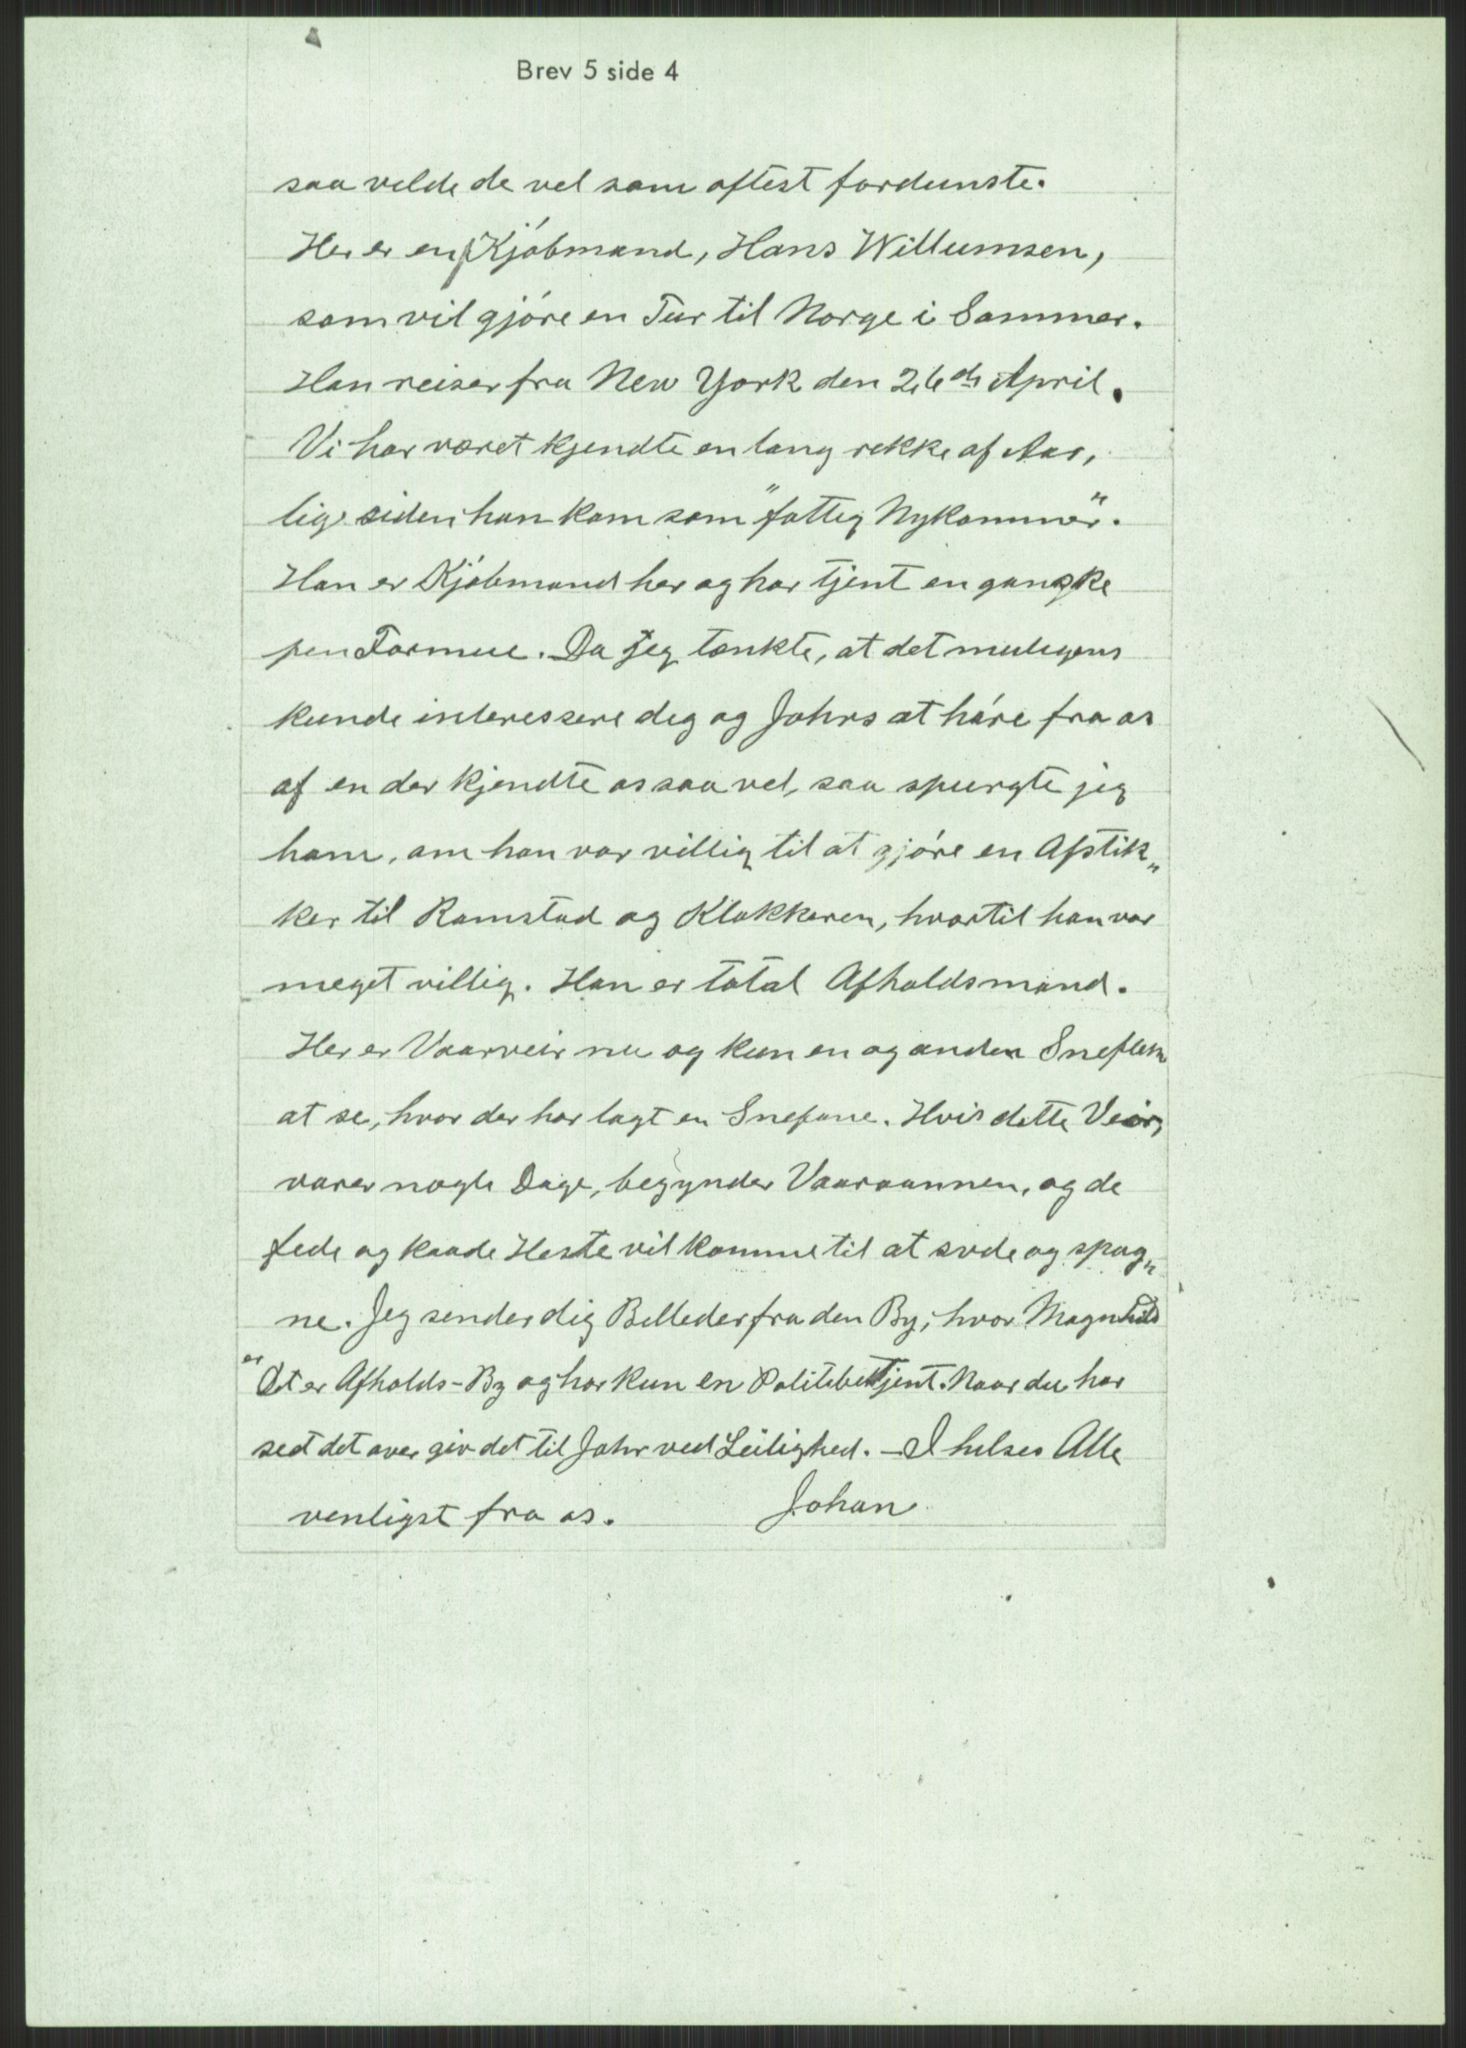 Brev 5 side 4
saa vilde de vel som oftest fordunste.
Her er en Kjóbmand, Hans Willumsen,
som vil gjóre en Tur til Norge i Sommer.
Han reiser fra New York den 26de April.
Vi har været kjendte en lang rekke af Aar,
lige siden han kom som "fattig Nykommer".
Han er Kjóbmand her og har tjent en ganske
pen Formue. Da jeg tænkte, at det muligens
kunde interessere dig og Johrs at hóre fra os
af en der kjendte os saa vel, saa spurgte jeg
ham, om han var villig til at gjóre en Afstik„
ker til Ramstad og Klokkeren, hvortil han var
meget villig. Han er total Afholdsmand.
Her er Vaarveir nu og kun en og anden Sneflek
at se, hvor der har lagt en Snefane. Hvis dette Veir,
varer nogle Dage, begynder Vaaraannen, og de
fede og kaade Heste vil komme til at svede og spag„
ne. Jeg sender dig Billeder fra den By, hvor Magnhild
er
Det er Afholds-By og har kun en Politibetjent. Naar du har
seet det over giv det til Johr ved Leilighed. — I hilses Alle
venligst fra os. Johan